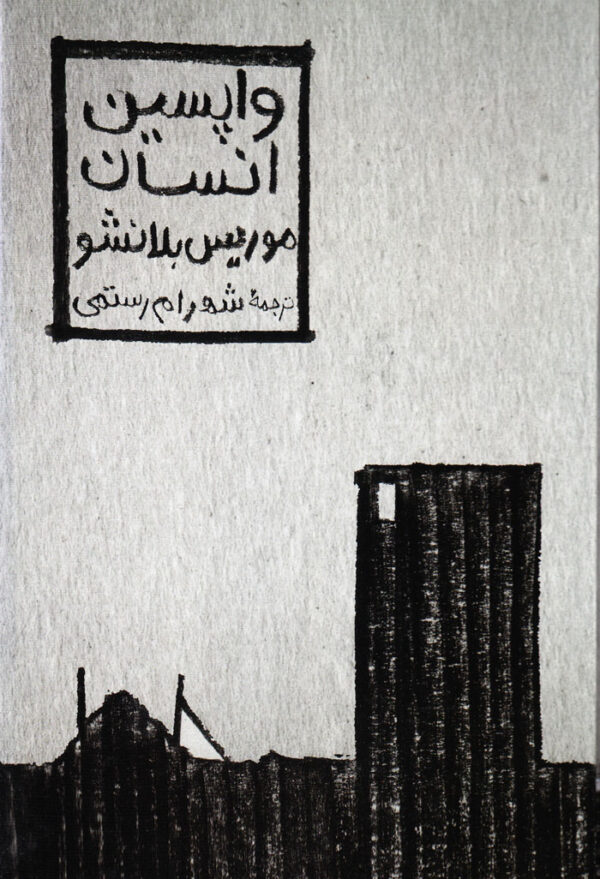 واپسین
انسان
موریس بلانشو
ترجمهٔ شهرام رستمی